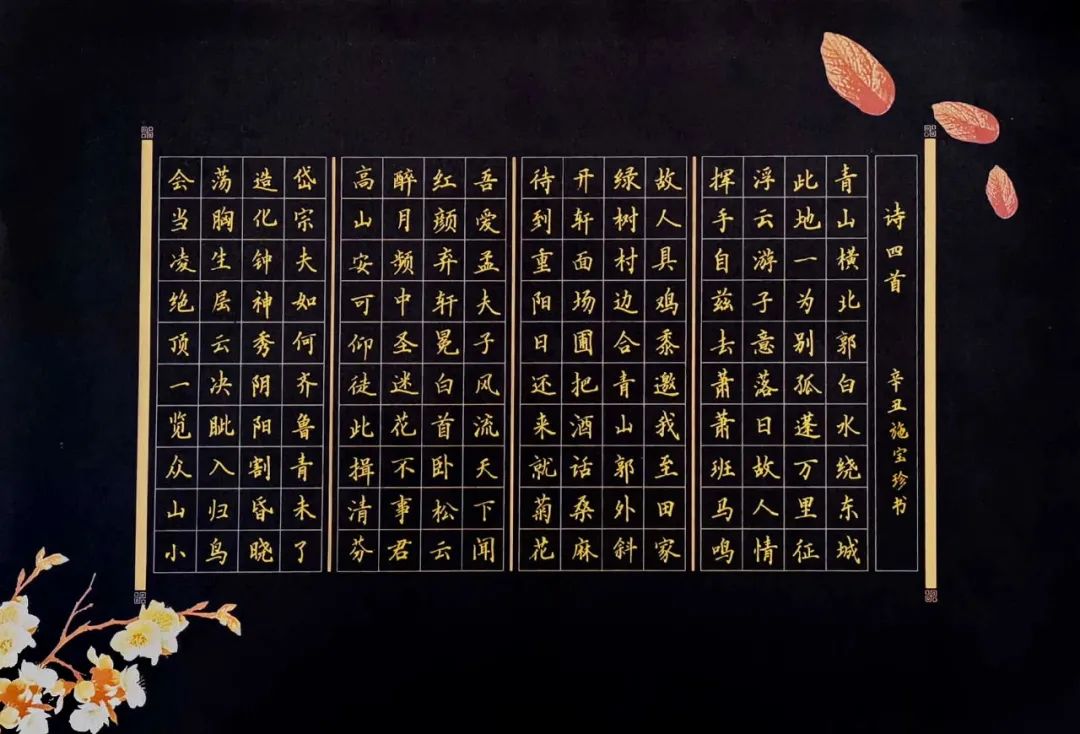 诗四首 辛丑施宝珍书
青山横北郭白水绕东城
此地一为别孤蓬万里征
浮云游子意落日故人情
挥手自兹去萧萧班马鸣
故人具鸡黍邀我至田家
绿树村边合青山郭外斜
开轩面场圃把酒话桑麻
待到重阳日还来就菊花
吾爱孟夫子风流天下闻
红颜弃轩冕白首卧松云
醉月频中圣迷花不事君
高山安可仰徒此揖清芬
岱宗夫如何齐鲁青未了
造化钟神秀阴阳割昏晓
荡胸生层云决眦入归鸟
会当凌绝顶一览众山小